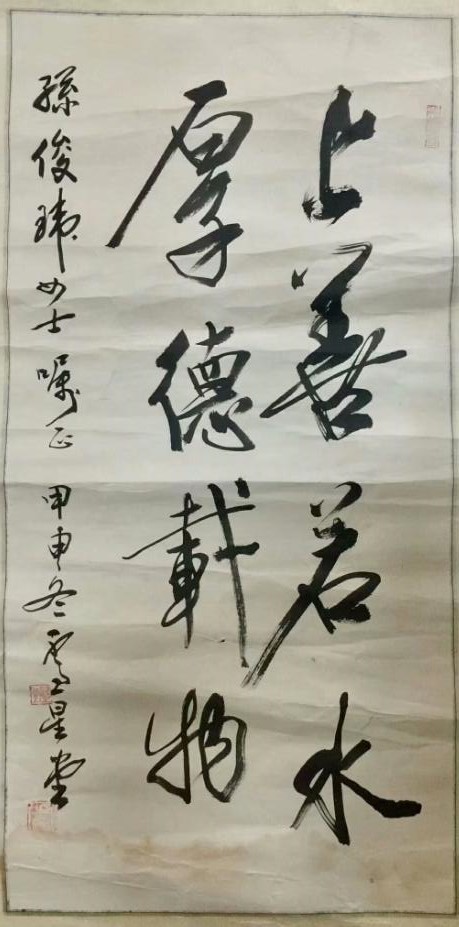 上善若水
厚德载物
孫俊瑋女士嘱正 甲申冬 星堂